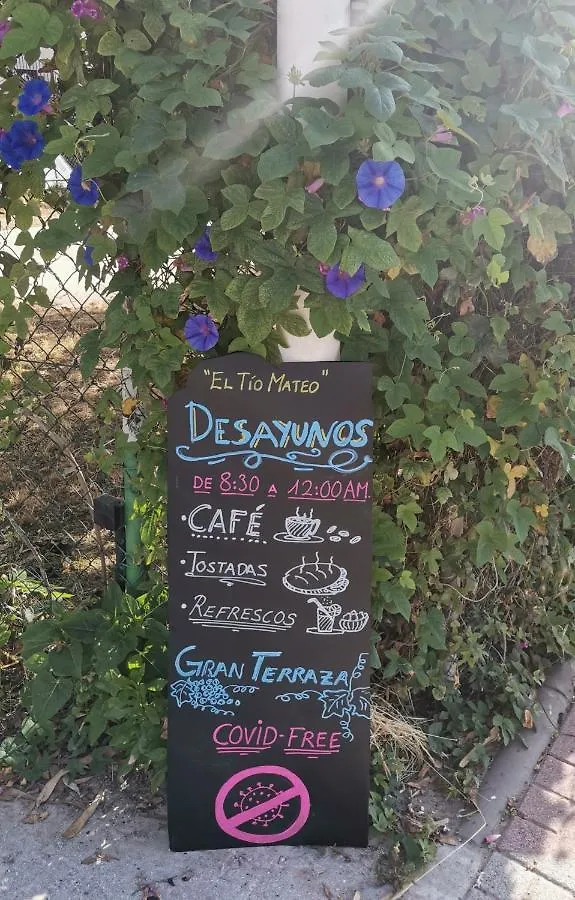 "EL TÍO MATEO"
DESAYUNOS
DE 8:30 A 12:00AM.
· CAFÉ
· TOSTADAS
· REFRESCOS
GRAN TERRAZA
COVID-FREE